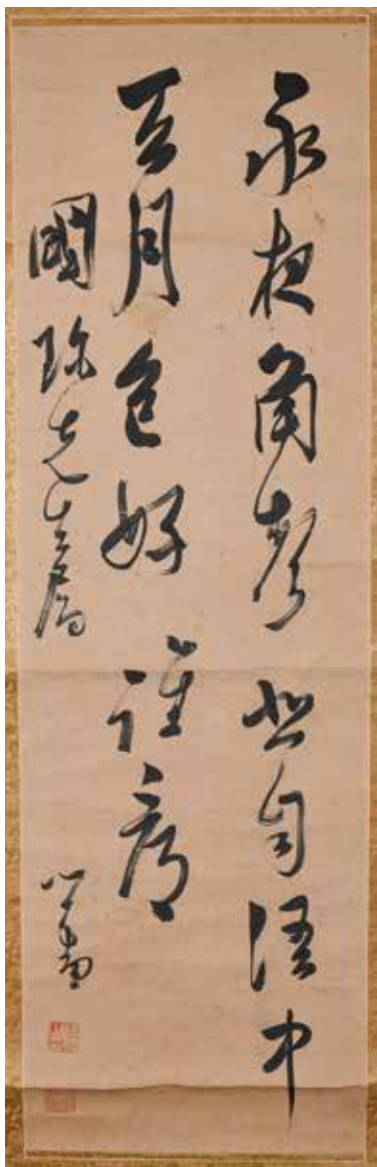 永夜角聲悲自語中
天月色好誰看
國珍先生屬
心畬